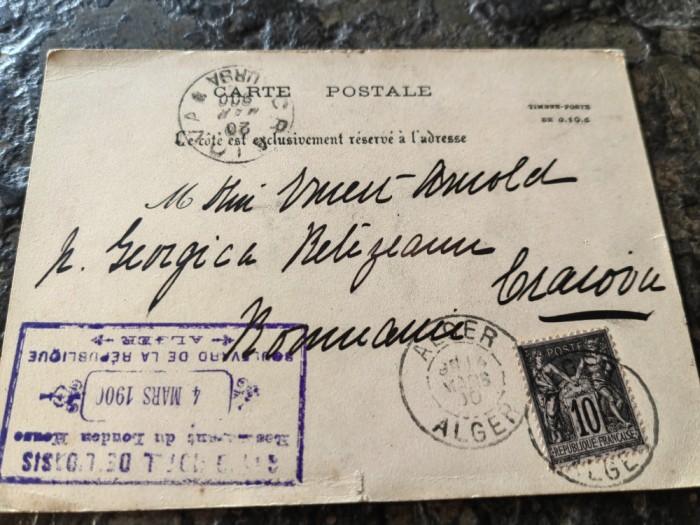 CARTE POSTALE
TIMBRE-POSTE
DE 0.10.c
Ce côté est exclusivement réservé à l'adresse
CRAIOVA
20
MAR
900
M
Arnold
Georgica
Craiova
Roumanie
ALGER
MARS
00
ALGER
POSTE
10
REPUBLIQUE FRANÇAISE
HOTEL DE L'OASIS
Restaurant du London House
4 MARS 1900
BOULEVARD DE LA RÉPUBLIQUE
ALGER